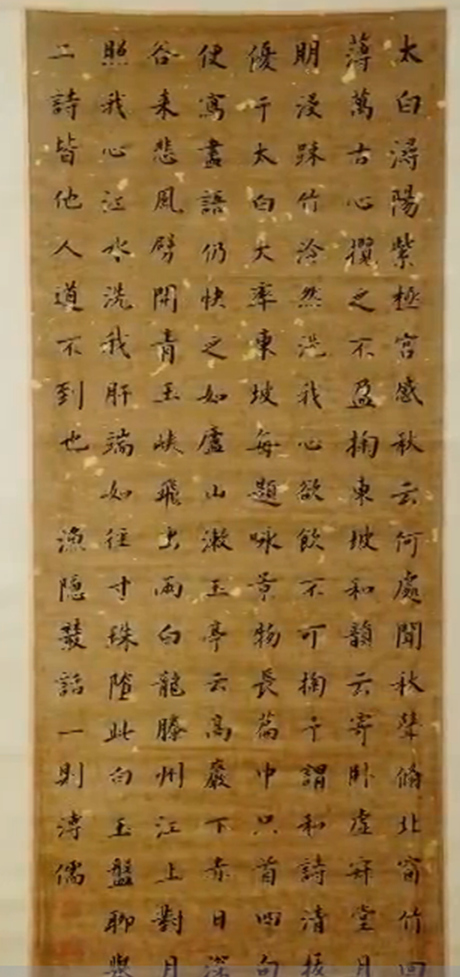 太白潯陽紫極宮感秋云何處聞秋聲翛北窗竹回
薄萬古心攬之不盈掬東坡和韻云寄臥虛寂堂月
明浸疎竹泠然洗我心欲飲不可掬予謂和詩清拔
優于太白大率東坡每題咏景物長篇中只首四句
便寫盡語仍快之如廬山漱玉亭云高巖下赤日深
谷來悲風劈開青玉峽飛出兩白龍滕州江上對月
照我心江水洗我肝端如徑寸珠墮此白玉盤聊與
二詩皆他人道不到也
漁隱叢話一則 溥儒